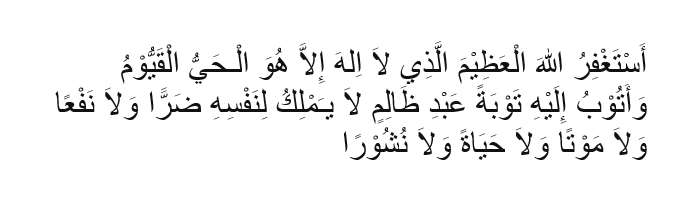 أَسْتَغْفِرُ اللهَ الْعَظِيْمَ الَّذِي لاَ اِلهَ إِلاَّ هُوَ الْـحَيُّ الْقَيُّوْمُ
وَأَتُوْبُ إِلَيْهِ تَوْبَةً عَبْدِ ظَالِمٍ لاَ يـَمْلِكُ لِنَفْسِهِ ضَرًّا وَلاَ نَفْعًا
وَلاَ مَوْتًا وَلاَ حَيَاةً وَلاَ نُشُوْرًا